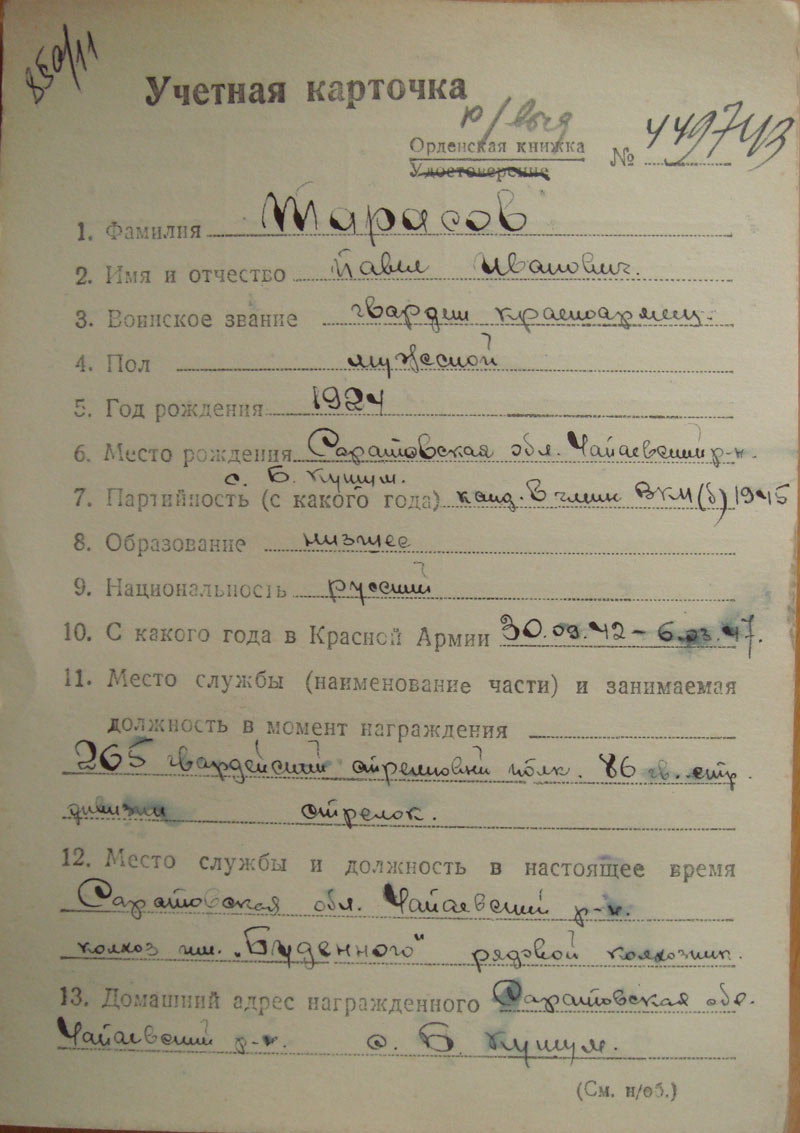 850/11
Учетная карточка
Орденская книжка
Удостоверение
№ 449743
1. Фамилия Тарасов
2. Имя и отчество Павел Иванович.
3. Воинское звание гвардии красноармеец.
4. Пол мужской
5. Год рождения 1924
6. Место рождения Саратовская обл. Чапаевский р-н.
с. Б. Кушум.
7. Партийность (с какого года) канд. в члены ВКП(б) 1945
8. Образование низшее
9. Национальность русский
10. С какого года в Красной Армии 47.
11. Место службы (наименование части) и занимаемая
должность в момент награждения
265 гвардейский стрелковый полк. 86 гв. стр.
дивизии стрелок.
12. Место службы и должность в настоящее время
Саратовская обл. Чапаевский р-н.
колхоз им. „Буденного" рядовой колхозник.
13. Домашний адрес награжденного Саратовская обл.
Чапаевский р-н. с. Б. Кушум.
(См. н/об.)